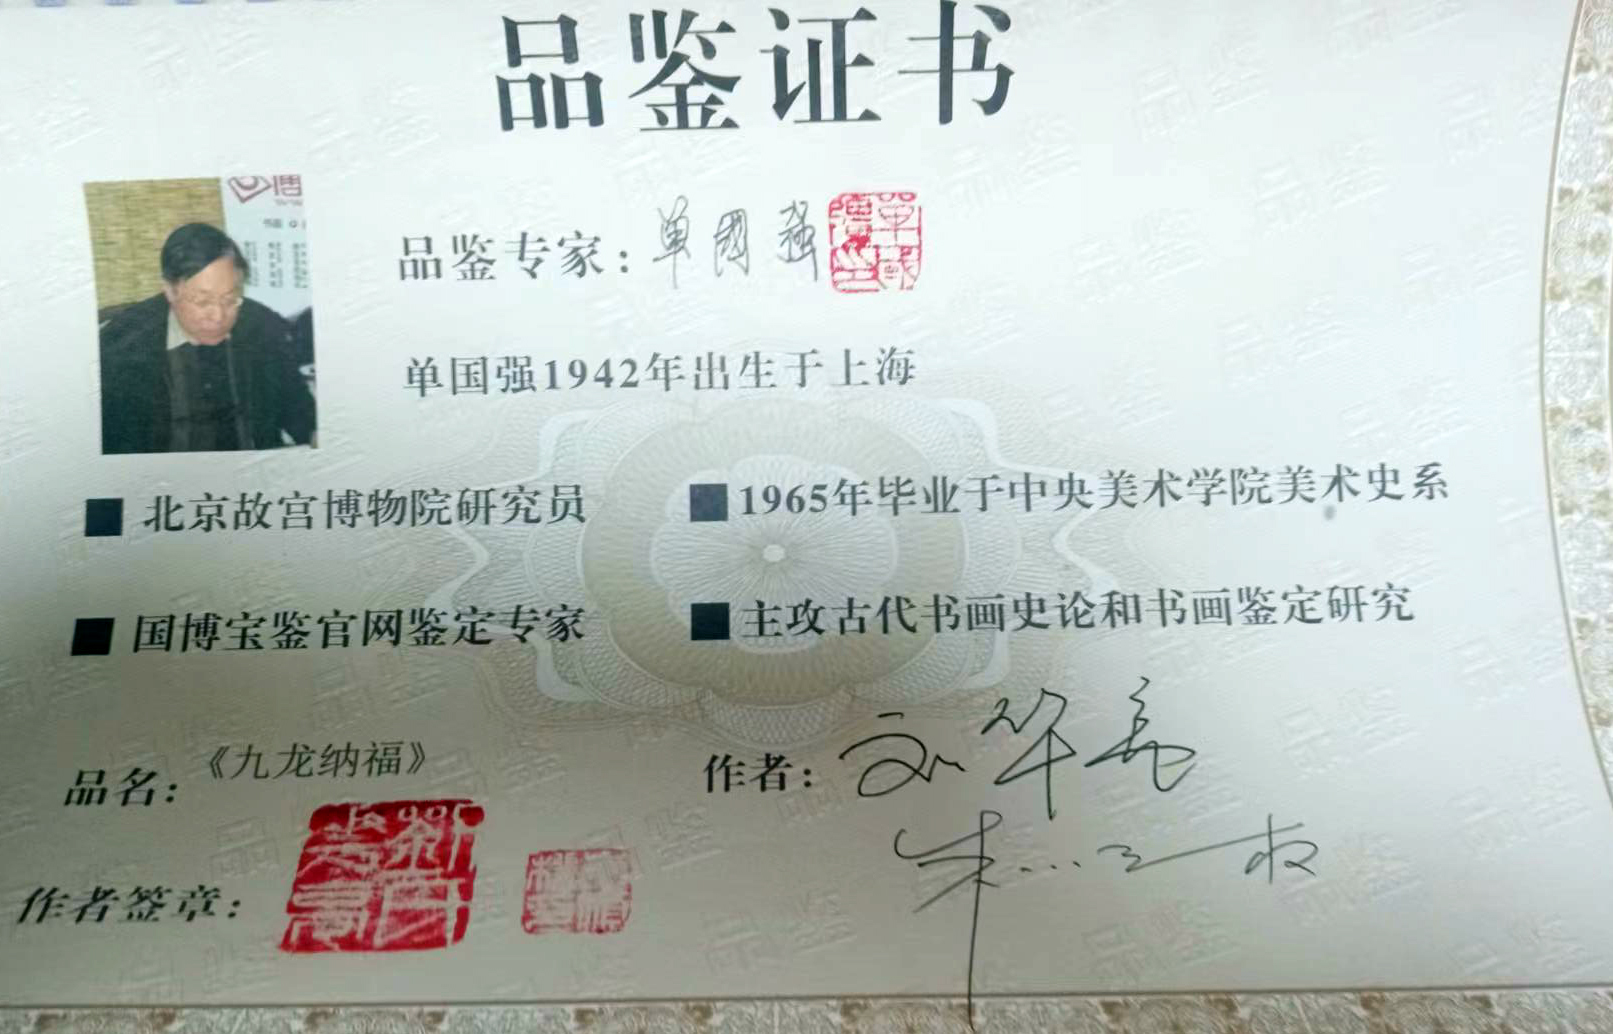 品鉴证书
品鉴专家：单國强
单国强1942年出生于上海
■ 北京故宫博物院研究员
■ 1965年毕业于中央美术学院美术史系
■ 国博宝鉴官网鉴定专家
■ 主攻古代书画史论和书画鉴定研究
品名：《九龙纳福》
作者：
作者签章：